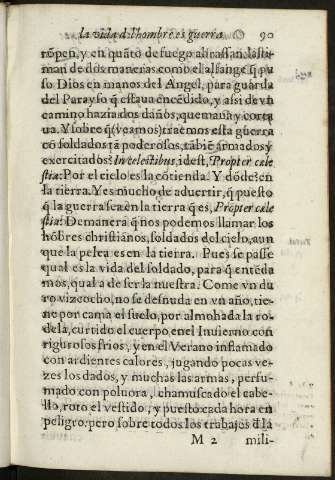 la vida d'l hombre es guerra. 90
rõpen, y en quãto de fuego abrassan. lasti
man de dos maneras como el alfange q̃ pu
so Dios en manos del Angel, para guarda
del Parayso q̃ estaua encẽdido, y assi de vn
camino hazia dos daños, quemaua y corta
ua. Y sobre q̃ (veamos) traemos esta guerra
cõ soldados tã poderosos, tãbiẽ armados y
exercitados? In celestibus, idest, Propter cæle
stia: Por el cielo es la cõtienda. Y dõde? en
la tierra. Y es mucho de aduertir, q̃ puesto
q̃ la guerra sea en la tierra q̃ es, Propter cæle
stia: De manera q̃ nos podemos llamar los
hõbres christianos, soldados del cielo, aun
que la pelea es en la tierra. Pues se passe
qual es la vida del soldado, para q̃ entẽda
mos, qual a de ser la nuestra. Come vn du
ro vizcocho, no se desnuda en vn año, tie-
ne por cama el suelo, por almohada la ro-
dela, curtido el cuerpo en el Inuierno con
rigurosos frios, y en el Verano inflamado
con ardientes calores, jugando pocas ve-
zes los dados, y muchas las armas, perfu-
mado con poluora, chamuscado el cabe-
llo, roto el vestido, y puesto cada hora en
peligro: pero sobre todos los trabajos d'la
M 2 mili-